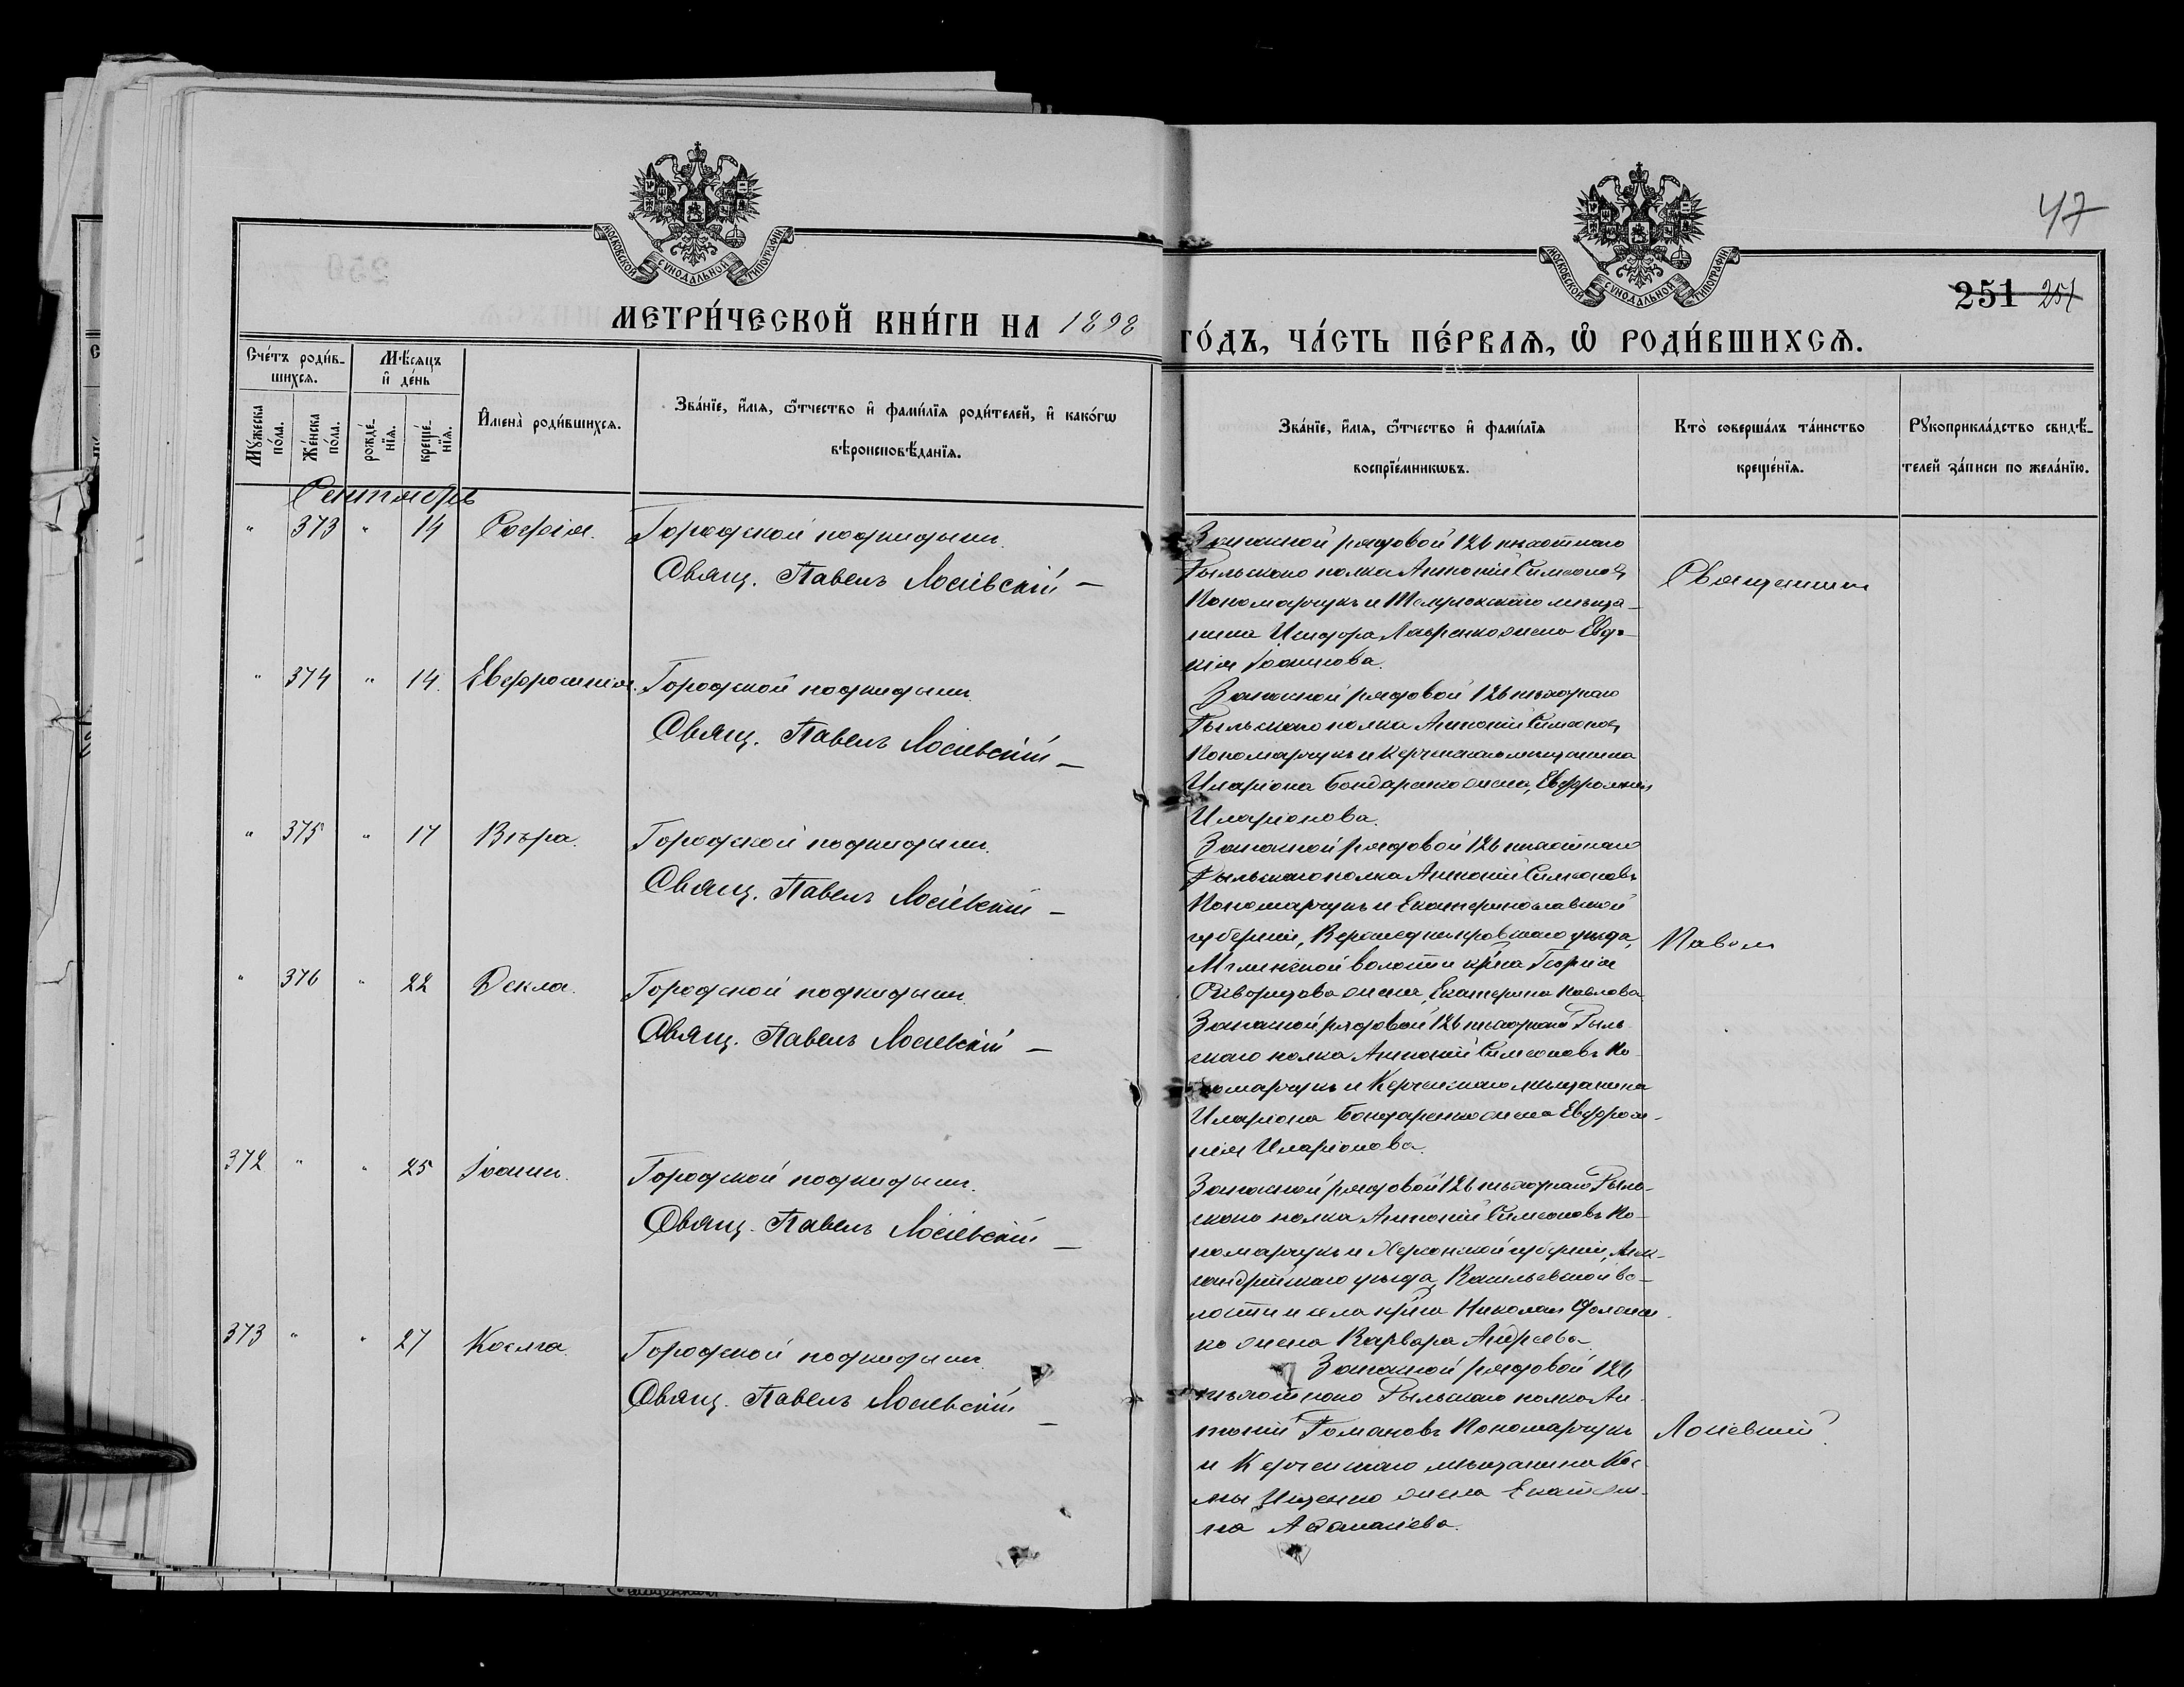 47
МОСКОВСКОЙ СУНОДАЛЬНОЙ ТИПОГРАФІИ
МОСКОВСКОЙ СУНОДАЛЬНОЙ ТИПОГРАФІИ
251 251
МЕТРИ́ЧЕСКОЙ КНИ́ГИ НА 1898
ГО́ДЪ, ЧА́СТЬ ПЕ́РВАЯ, Ѡ҆ РОДИ́ВШИХСЯ.
Сче́тъ роди́в-
шихся.
Мѣ́сяцъ
и҆ де́нь
Му́жеска по́ла.
Же́нска по́ла.
рожде́-
нїя.
креще́-
нїя.
И҆мена̀ роди́вшихся.
Зва́нїе, и҆́мя, ѻ҆́тчество и҆ фамѝлїя роди́телей, и҆ како́гѡ
вѣроисповѣ́данїя.
Зва́нїе, и҆́мя, ѻ҆́тчество и҆ фамѝлїя
воспрїе́мникѡвъ.
Кто̀ соверша́лъ та́инство
креще́нїя.
Рукоприкла́дство свидѣ́-
телей за́писи по жела́нїю.
Сентябрь
" 373 " 14 Софія. Городской подкидышъ.
Свящ. Павелъ Лосіевскій —
Запасной рядовой 126 пѣхотнаго
Рыльскаго полка Антоній Симеоновъ
Пономарчукъ и Темрюкскаго мѣща-
нина Исидора Лавренко жена Евдо-
кія Іоаннова.
Священникъ
" 374 " 14. Евфросинія. Городской подкидышъ.
Свящ. Павелъ Лосіевскій —
Запасной рядовой 126 пѣхотнаго
Рыльскаго полка Антоній Симеоновъ
Пономарчукъ и Керченскаго мѣщанина
Иларіона Бондаренко жена, Евфросинія
Иларіонова.
" 375 " 17 Вѣра. Городской подкидышъ.
Свящ. Павелъ Лосіевскій —
Запасной рядовой 126 пѣхотнаго
Рыльскаго полка Антоній Симеоновъ
Пономарчукъ и Екатеринославской
губерніи, Верхнеднѣпровскаго уѣзда,
волости кр-на Георгія
жена, Екатерина Павлова
Павелъ
" 376 " 22 Ѳекла. Городской подкидышъ.
Свящ. Павелъ Лосіевскій —
Запасной рядовой 126 пѣхотнаго Рыль-
скаго полка Антоній Симеоновъ По-
номарчукъ и Керченскаго мѣщанина
Иларіона Бондаренко жена Евфроси-
нія Иларіонова.
372 " " 25 Іоаннъ. Городской подкидышъ.
Свящ. Павелъ Лосіевскій —
Запасной рядовой 126 пѣхотнаго Рыль-
скаго полка Антоній Симеоновъ По-
номарчукъ и Херсонской губерніи, Алек-
сандрійскаго уѣзда, Васильевской во-
лости и села кр-на Николая
жена Варвара Андреева.
373 " " 27 Косма. Городской подкидышъ.
Свящ. Павелъ Лосіевскій —
Запасной рядовой 126
пѣхотнаго Рыльскаго полка Ан-
тоній Романовъ Пономарчукъ
и Керченскаго мѣщанина Кос-
мы Ищенко жена Екатери-
на Аѳанасіева.
Лосіевскій